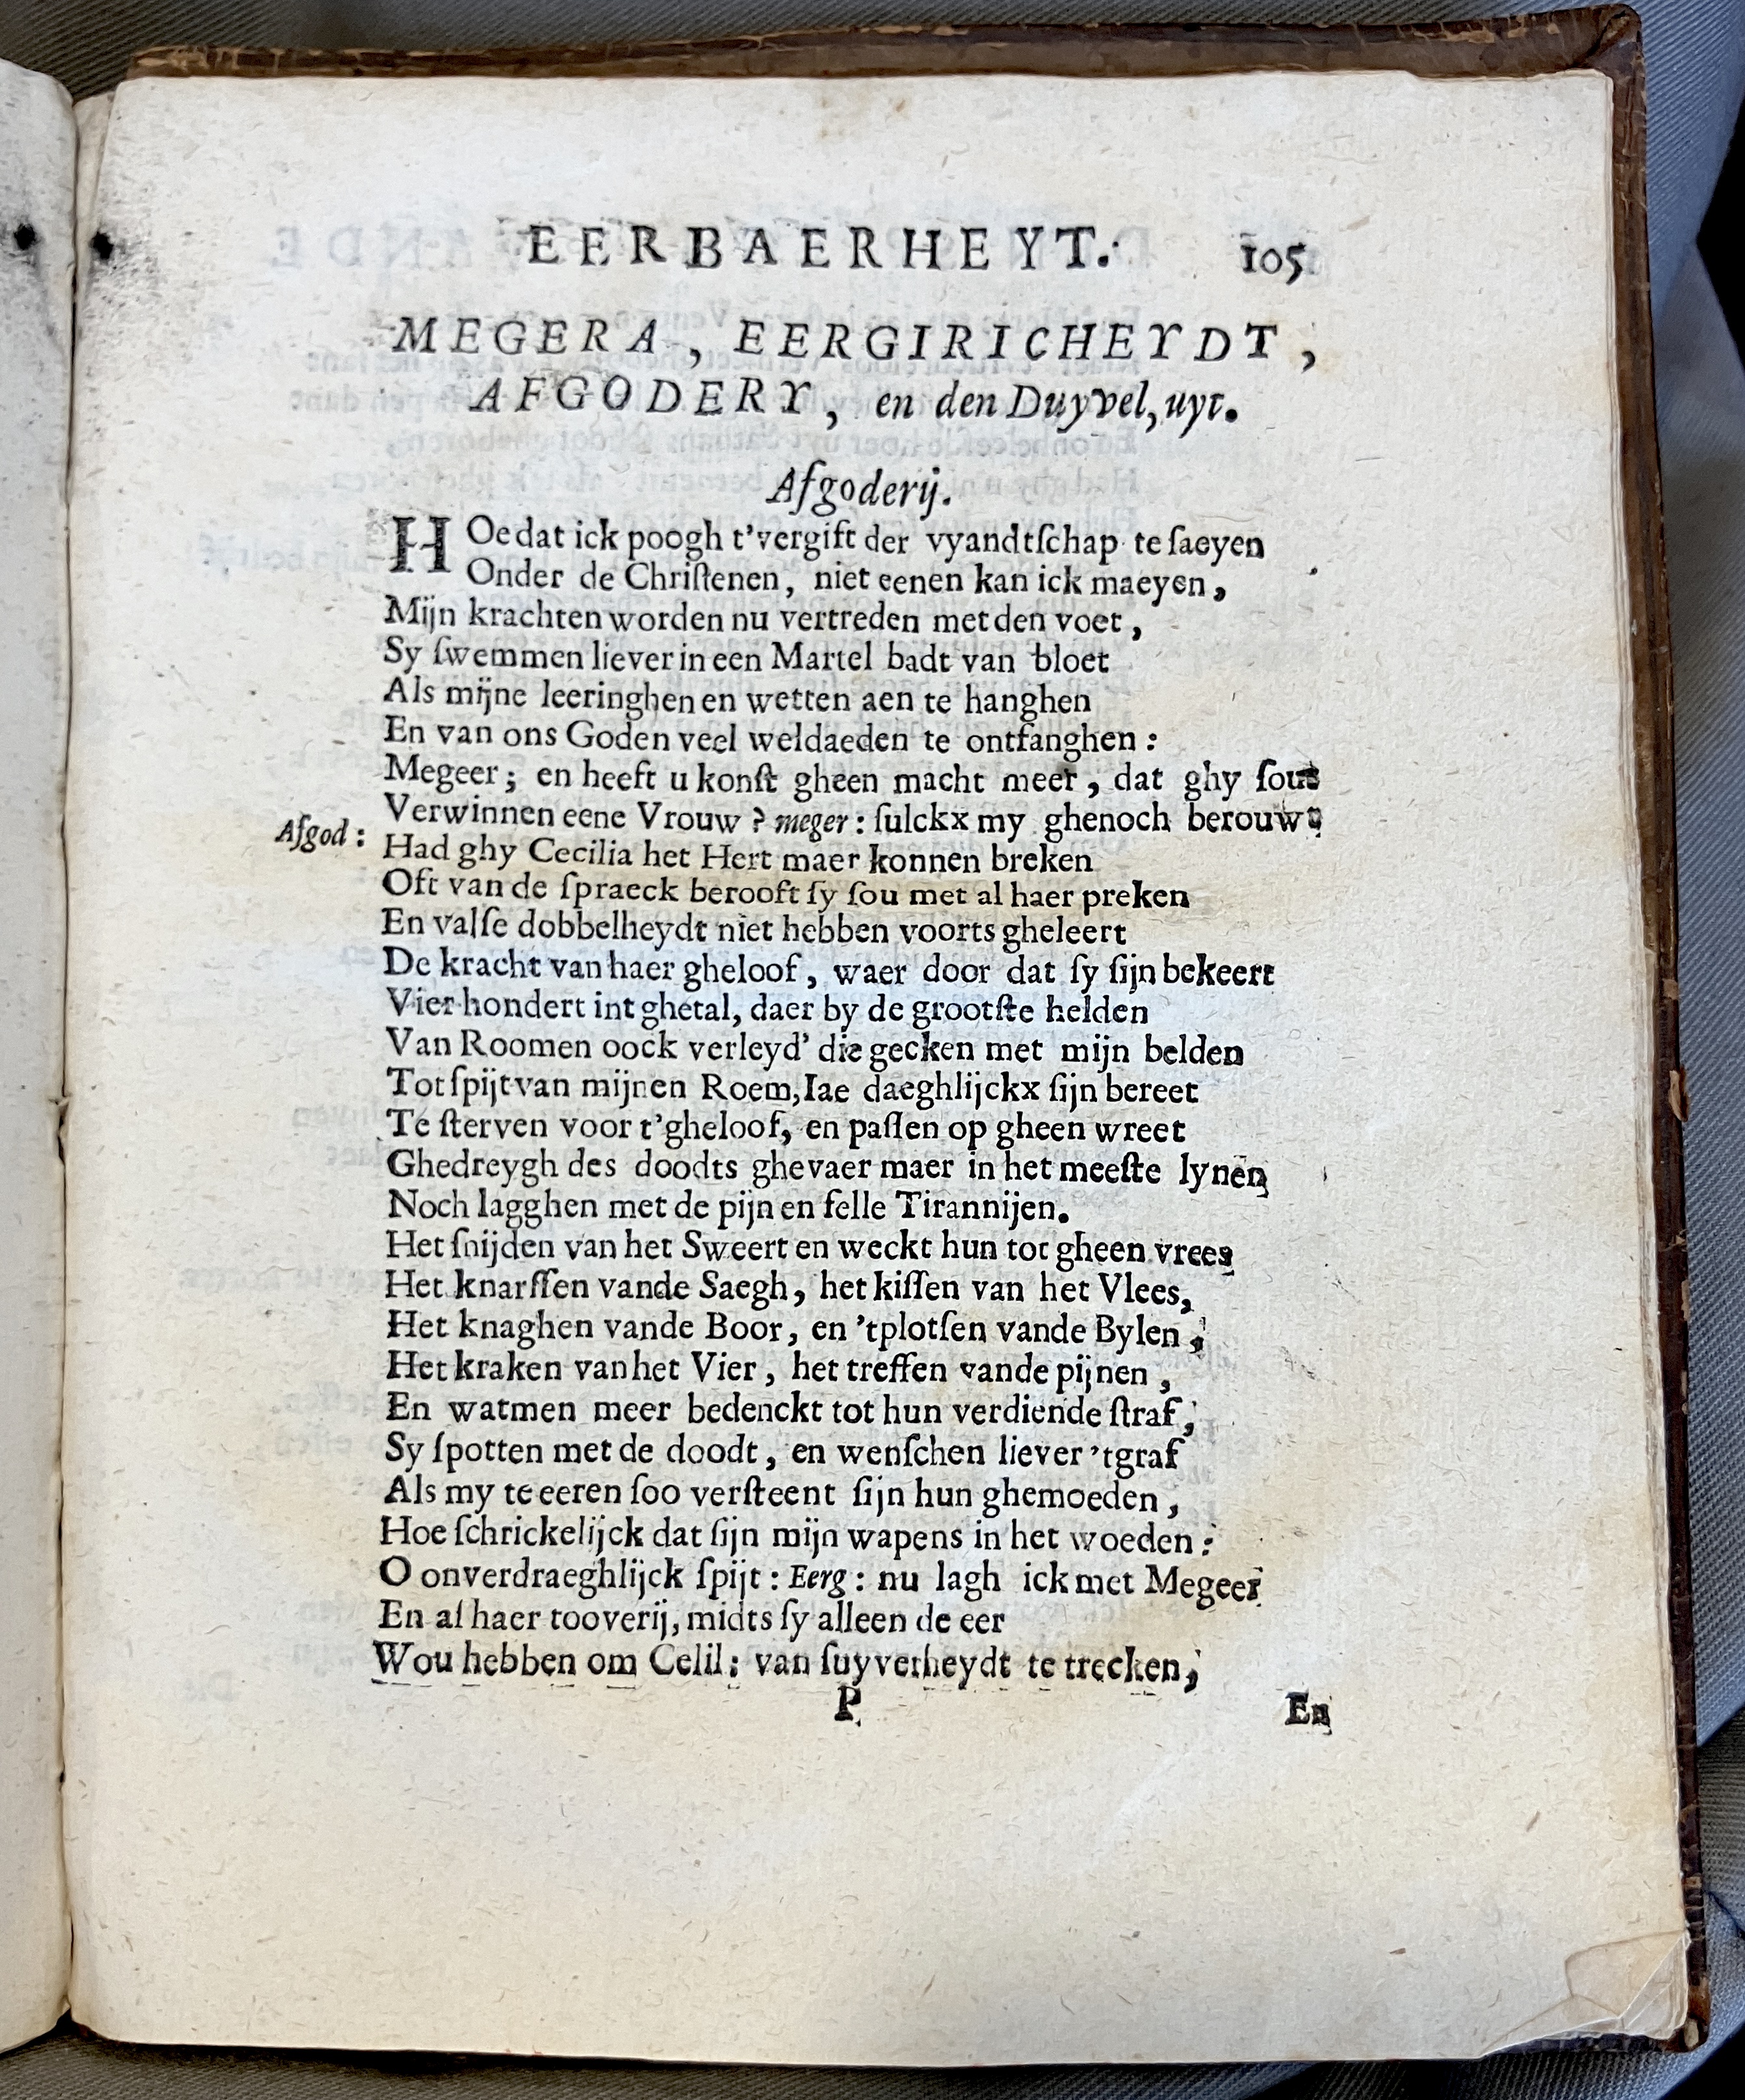 EERBAERHEYT. 105
MEGERA, EERGIRICHEYDT,
AFGODERY, en den Duyvel, uyt.
Afgoderij.
HOe dat ick poogh t'vergift der vyandtſchap te ſaeyen
Onder de Chriſtenen, niet eenen kan ick maeyen,
Mijn krachten worden nu vertreden met den voet,
Sy ſwemmen liever in een Martel badt van bloet
Als mijne leeringhen en wetten aen te hanghen
En van ons Goden veel weldaeden te ontfanghen:
Megeer; en heeft u konſt gheen macht meer, dat ghy ſout
Verwinnen eene Vrouw? meger: ſulckx my ghenoch berouwt
Afgod: Had ghy Cecilia het Hert maer konnen breken
Oft van de ſpraeck berooft ſy ſou met al haer preken
En valſe dobbelheydt niet hebben voorts gheleert
De kracht van haer gheloof, waer door dat ſy ſijn bekeert
Vier hondert int ghetal, daer by de grootſte helden
Van Roomen oock verleyd' die gecken met mijn belden
Tot ſpijt van mijnen Roem, Iae daeghlijckx ſijn bereet
Te ſterven voor t'gheloof, en paſſen op gheen wreet
Ghedreygh des doodts ghevaer maer in het meeſte lynen
Noch lagghen met de pijn en felle Tirannijen.
Het ſnijden van het Sweert en weckt hun tot gheen vrees
Het knarſſen vande Saegh, het kiſſen van het Vlees,
Het knaghen vande Boor, en 'tplotſen vande Bylen,
Het kraken van het Vier, het treffen vande pijnen,
En watmen meer bedenckt tot hun verdiende ſtraf,
Sy ſpotten met de doodt, en wenſchen liever 'tgraf
Als my te eeren ſoo verſteent ſijn hun ghemoeden,
Hoe ſchrickelijck dat ſijn mijn wapens in het woeden:
O onverdraeghlijck ſpijt: Eerg: nu lagh ick met Megeer
En al haer tooverij, midts ſy alleen de eer
Wou hebben om Celil: van ſuyverheydt te trecken,
P En